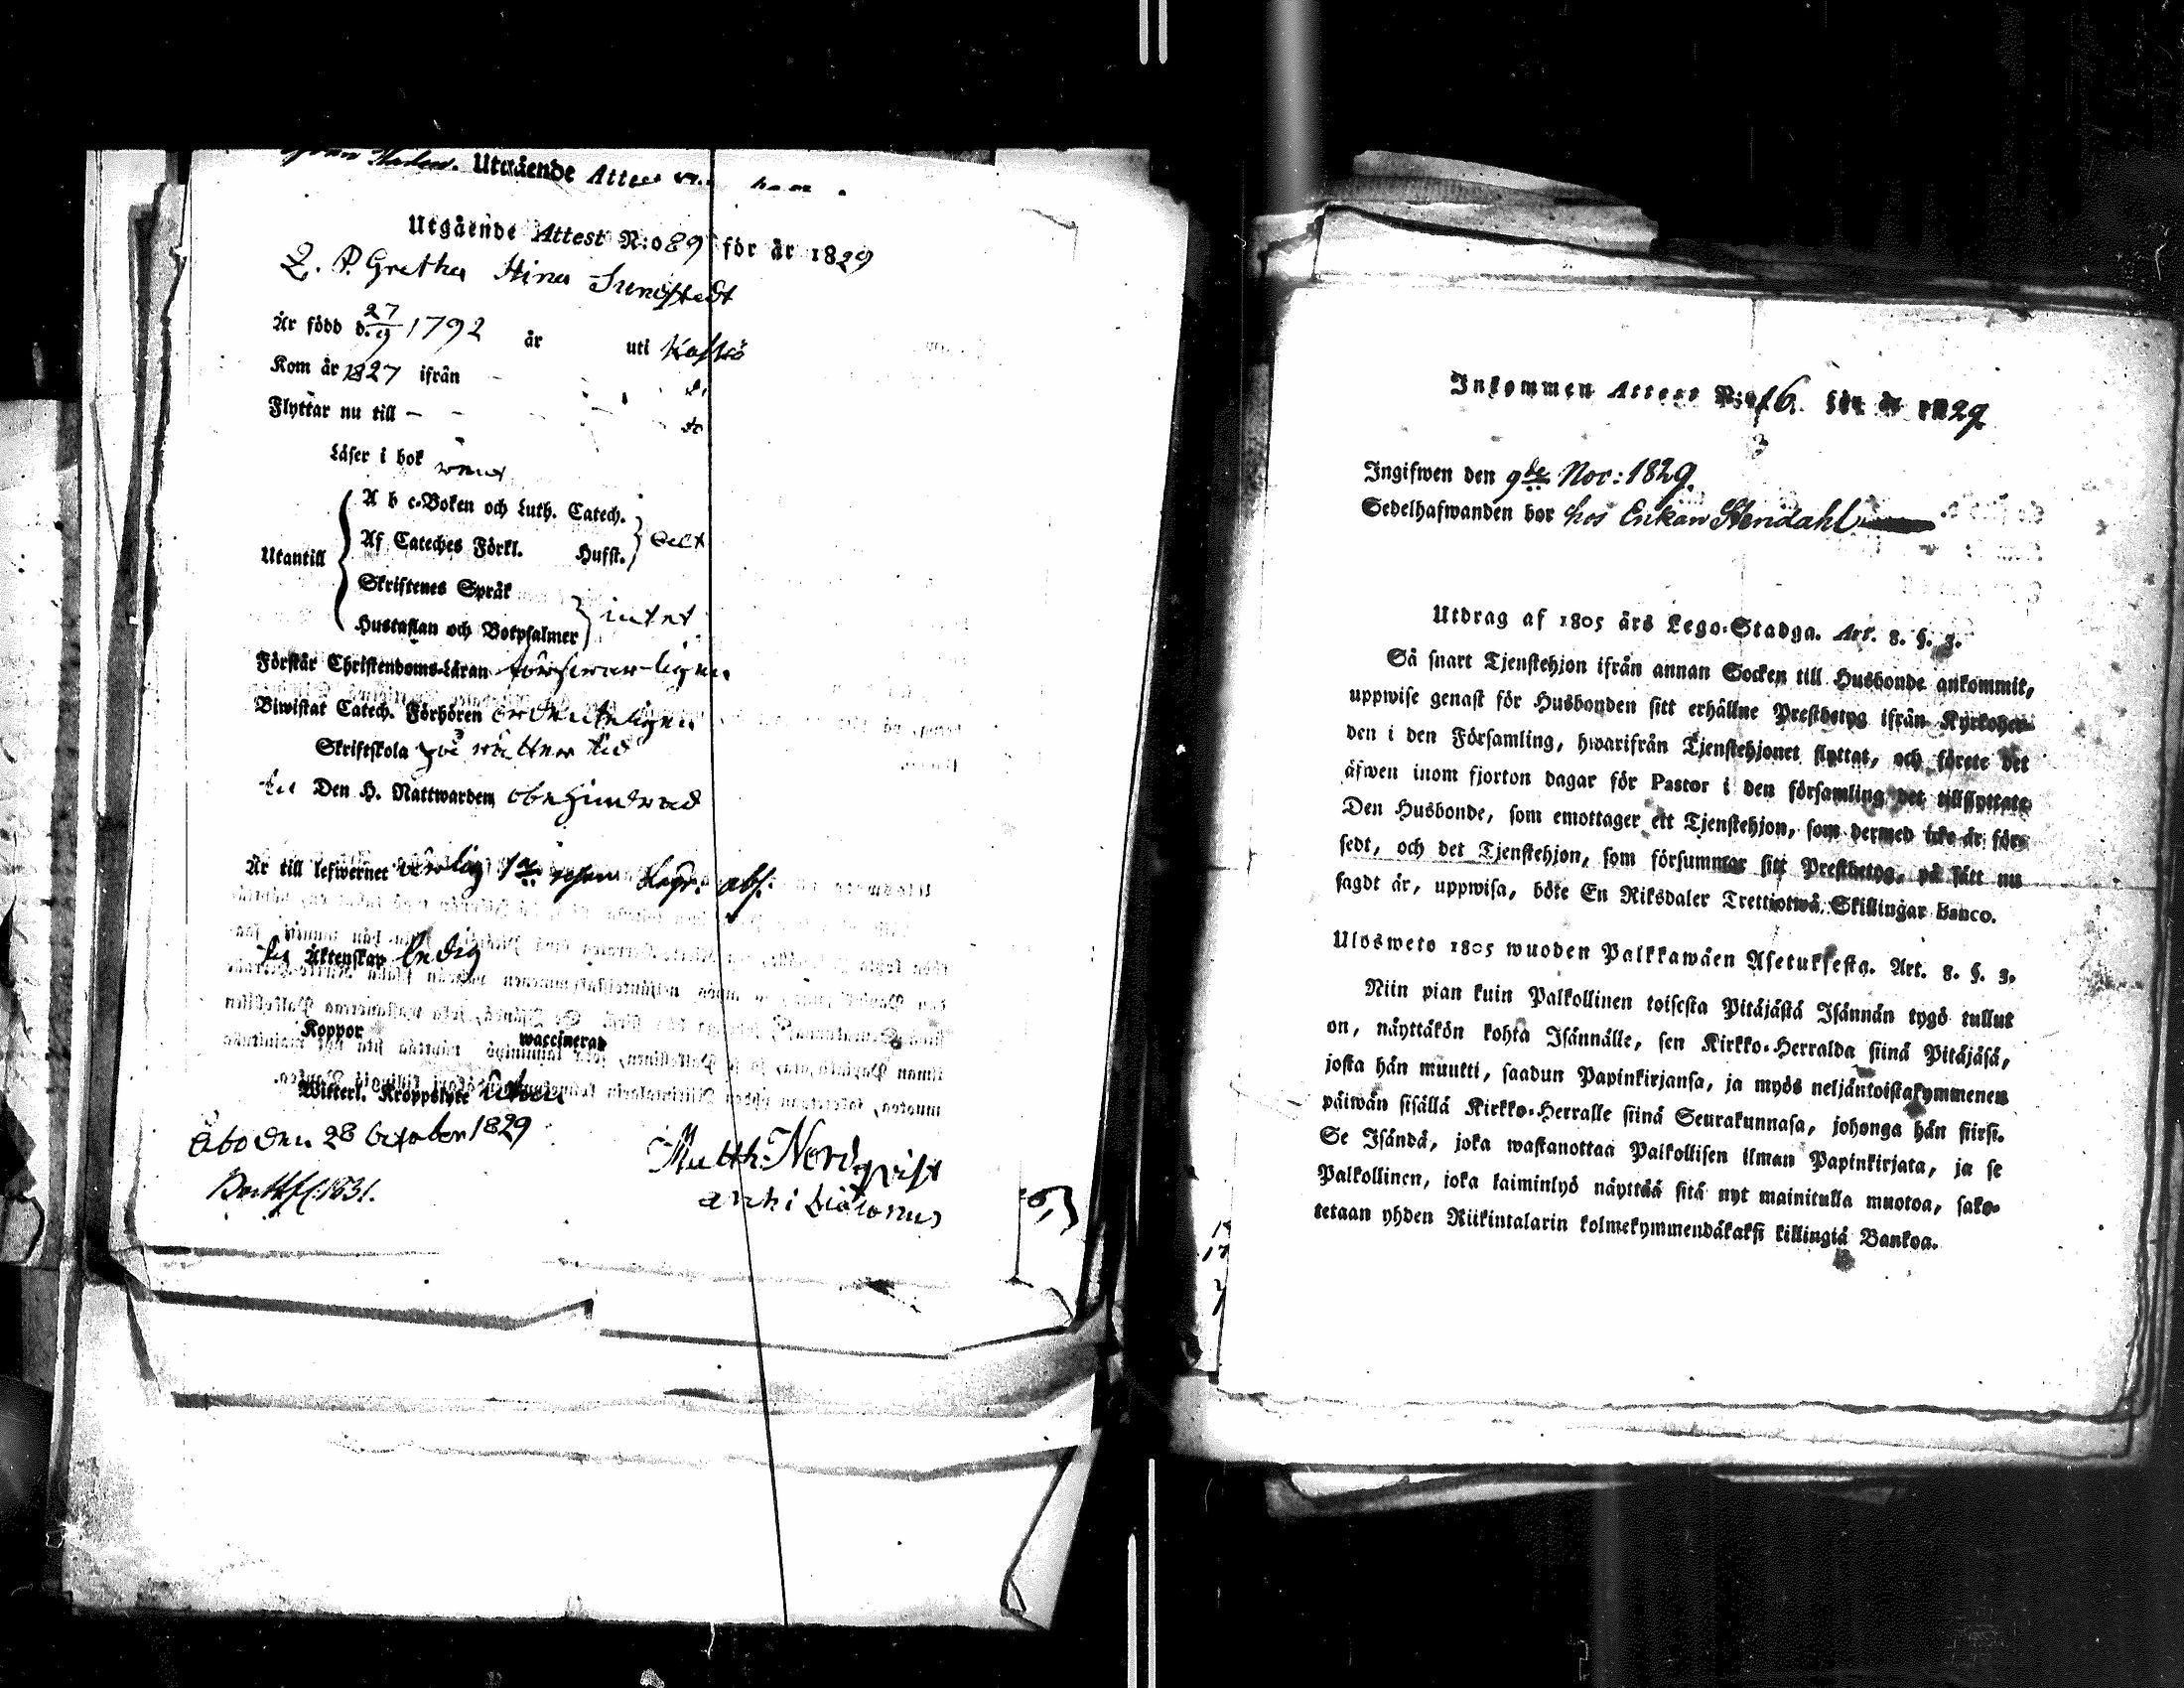 Utgående Attest
Utgående Attest N:o 89 för år 1829
Q. P. Gretha Stina Sundstedt
Är född d. 27/9 1792 år uti Kaskö
Kom år 1827 ifrån — d:o
Flyttar nu till — d:o
Läser i bok
A b c-Boken och Luth. Catech.
Af Cateches Förkl. Husst.
Utantill
Skriftenes Språk
Hustaflan och Botpsalmer intet
Förstår Christendoms-Läran försvarligen
Biwistat Catech. Förhören ordenteligen
Skriftskola på rätter tid
Den H. Nattwarden obehindrad
Är till lefwernet
Äktenskap ledig
Koppor waccinerad
Witterl. Kroppslyte utan
Åbo den 28 October 1829
Matth: Nordqvist
1831.
archi Diaconus
Inkommen Attest N:o 16. för år 1829.
Ingifwen den 9de Nov: 1829.
Sedelhafwanden bor hos Enkan Stendahl
Utdrag af 1805 års Lego-Stadga. Art. 8. §. 3.
Så snart Tjenstehjon ifrån annan Socken till Husbonde ankommit,
uppwise genast för Husbonden sitt erhållne Prestbetyg ifrån Kyrkoher-
den i den Församling, hwarifrån Tjenstehjonet flyttat, och förete det
äfwen inom fjorton dagar för Pastor i den församling det tillflyttat.
Den Husbonde, som emottager ett Tjenstehjon, som dermed icke är för-
sedt, och det Tjenstehjon, som försummar sitt Prestbetyg, på sätt nu
sagdt är, uppwisa, böte En Riksdaler Trettiotwå Skillingar Banco.
Ulosweto 1805 wuoden Palkkawäen Asetuksesta. Art. 8. §. 3.
Niin pian kuin Palkollinen toisesta Pitäjästä Isännän tygö tullut
on, näyttäkön kohta Isännälle, sen Kirkko-Herralda siinä Pitäjäsä,
josta hän muutti, saadun Papinkirjansa, ja myös neljäntoistakymmenen
päiwän sisällä Kirkko-Herralle siinä Seurakunnasa, johonga hän siirsi.
Se Isändä, joka wastanottaa Palkollisen ilman Papinkirjata, ja se
Palkollinen, joka laiminlyö näyttää sitä nyt mainitulla muotoa, sako-
tetaan yhden Riikintalarin kolmekymmendäkaksi killingiä Bankoa.